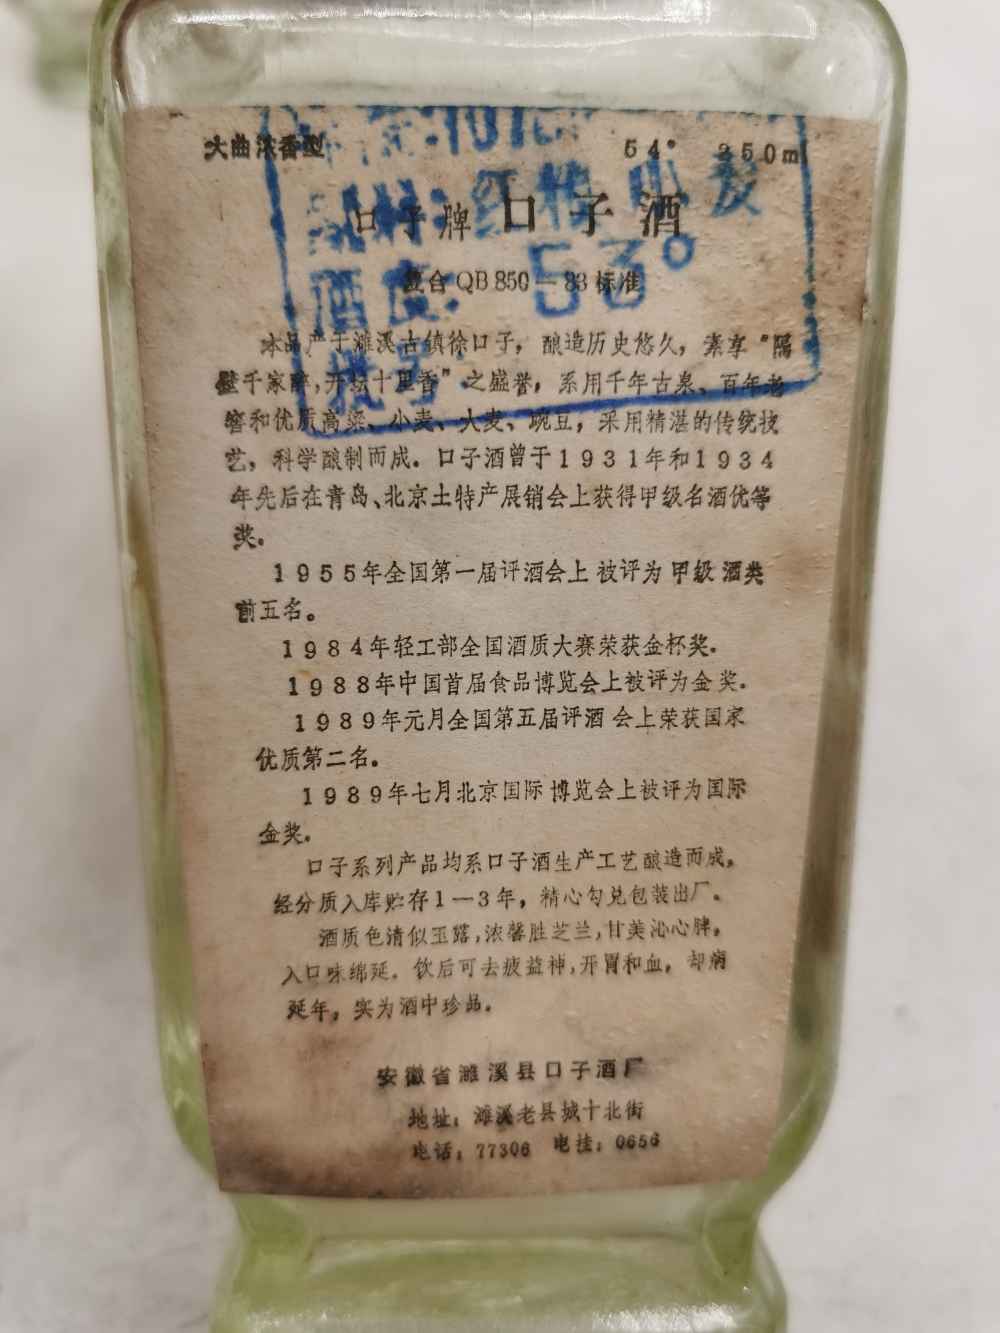 大曲浓香型 54° 250ml
口子牌 口子酒
复合QB850—83标准
红粮 小麦
酒度: 53°
本品产于濉溪古镇徐口子，酿造历史悠久，素享“隔
壁千家醉，开坛十里香”之盛誉，系用千年古泉、百年老
窖和优质高粱、小麦、大麦、豌豆，采用精湛的传统技
艺，科学酿制而成。口子酒曾于1931年和1934
年先后在青岛、北京土特产展销会上获得甲级名酒优等
奖。
1955年全国第一届评酒会上被评为甲级酒类
前五名。
1984年轻工部全国酒质大赛荣获金杯奖。
1988年中国首届食品博览会上被评为金奖。
1989年元月全国第五届评酒会上荣获国家
优质第二名。
1989年七月北京国际博览会上被评为国际
金奖。
口子系列产品均系口子酒生产工艺酿造而成，
经分质入库贮存1—3年，精心勾兑包装出厂。
酒质色清似玉露，浓馨胜芝兰，甘美沁心脾，
入口味绵延。饮后可去疲益神，开胃和血，却病
延年，实为酒中珍品。
安徽省濉溪县口子酒厂
地址：濉溪老县城十北街
电话：77306 电挂：0656